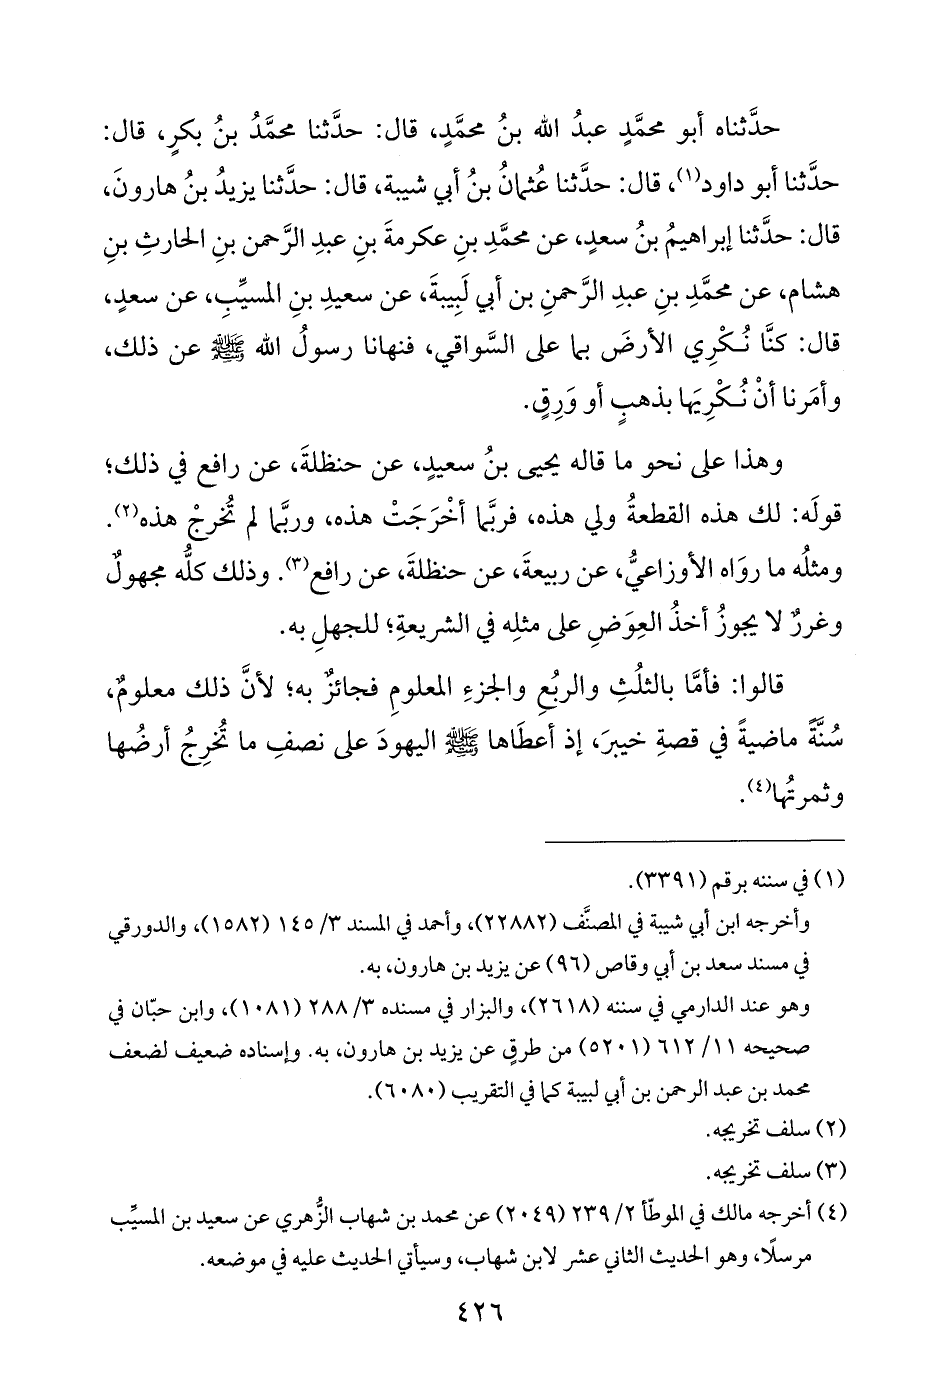 حدَّثناه أبو محمَّدٍ عبدُ الله بنُ محمَّدٍ، قال: حدَّثنا محمَّدُ بنُ بكرٍ، قال:
حدَّثنا أبو داود(١)، قال: حدَّثنا عُثمانُ بنُ أبي شيبة، قال: حدَّثنا يزيدُ بنُ هارونَ،
قال: حدَّثنا إبراهيمُ بنُ سعدٍ، عن محمَّدِ بنِ عكرمةَ بنِ عبدِ الرَّحمن بنِ الحارثِ بنِ
هشام، عن محمَّدِ بنِ عبدِ الرَّحمنِ بن أبي لَبِيبةَ، عن سعيدِ بنِ المسيِّبِ، عن سعدٍ،
قال: كنَّا نُكْرِي الأرضَ بما على السَّواقي، فنهانا رسولُ الله ﷺ عن ذلك،
وأمَرنا أنْ نُكْرِيَها بذهبٍ أو وَرِقٍ.
وهذا على نحو ما قاله يحيى بنُ سعيدٍ، عن حنظلةَ، عن رافع في ذلك؛
قولَه: لك هذه القطعةُ ولي هذه، فربَّما أخْرَجَتْ هذه، وربَّما لم تُخرِجْ هذه(٢).
ومثلُه ما روَاه الأوزاعيُّ، عن ربيعةَ، عن حنظلةَ، عن رافع(٣). وذلك كلُّه مجهولٌ
وغررٌ لا يجوزُ أخذُ العِوَضِ على مثلِه في الشريعةِ؛ للجهلِ به.
قالوا: فأمَّا بالثلُثِ والربُعِ والجزءِ المعلومِ فجائزٌ به؛ لأنَّ ذلك معلومٌ،
سُنَّةً ماضيةً في قصةِ خيبرَ، إذ أعطَاها ﷺ اليهودَ على نصفِ ما تُخرِجُ أرضُها
وثمرتُها(٤).
(١) في سننه برقم (٣٣٩١).
وأخرجه ابن أبي شيبة في المصنَّف (٢٢٨٨٢)، وأحمد في المسند ٣/ ١٤٥ (١٥٨٢)، والدورقي
في مسند سعد بن أبي وقاص (٩٦) عن يزيد بن هارون، به.
وهو عند الدارمي في سننه (٢٦١٨)، والبزار في مسنده ٣/ ٢٨٨ (١٠٨١)، وابن حبّان في
صحيحه ١١/ ٦١٢ (٥٢٠١) من طرقٍ عن يزيد بن هارون، به. وإسناده ضعيف لضعف
محمد بن عبد الرحمن بن أبي لبيبة كما في التقريب (٦٠٨٠).
(٢) سلف تخريجه.
(٣) سلف تخريجه.
(٤) أخرجه مالك في الموطّأ ٢/ ٢٣٩ (٢٠٤٩) عن محمد بن شهاب الزُّهري عن سعيد بن المسيِّب
مرسلًا، وهو الحديث الثاني عشر لابن شهاب، وسيأتي الحديث عليه في موضعه.
٤٢٦